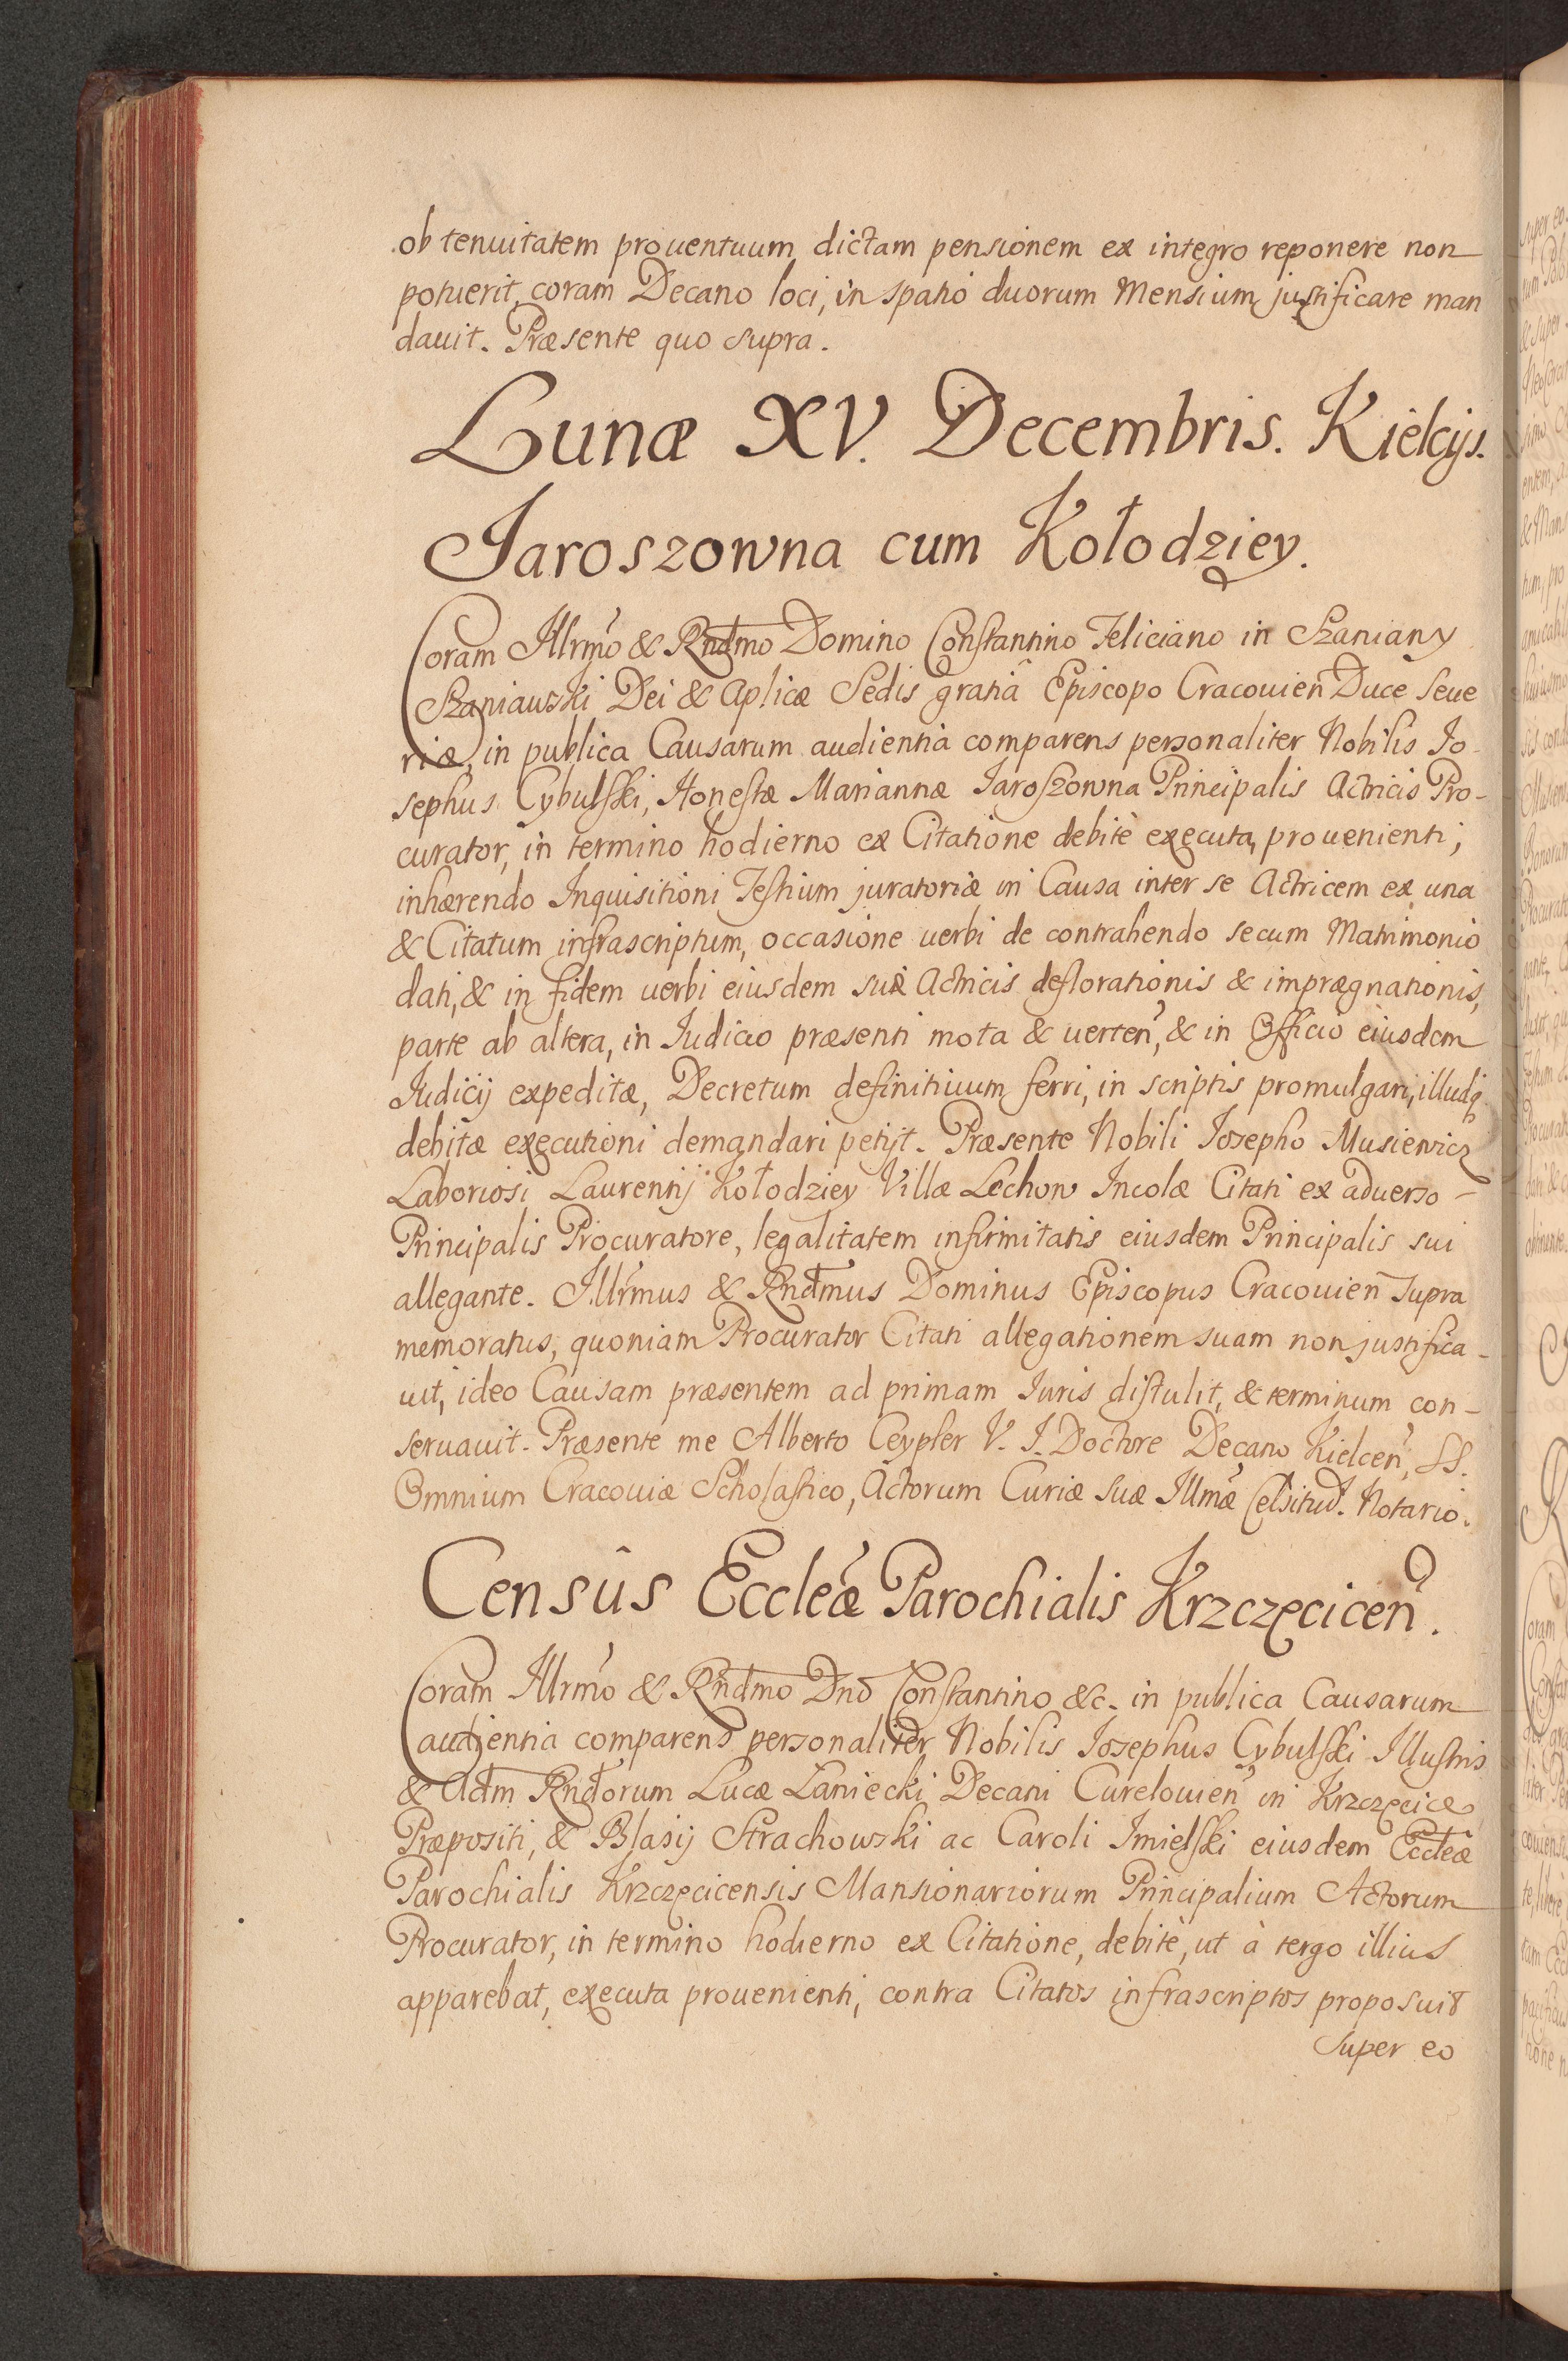 ob tenuitatem prouentuum dictam pensionem ex integro reponere non
potuerit, coram Decano loci, in spatio duorum Mensium justificare man
dauit. Præsente quo supra.
Lunæ XV. Decembris. Kielcijs.
Jaroszowna cum Kołodziey.
Coram Illrmo & Rndmo Domino Constantino Feliciano in Szaniany
Szaniawski Dei & Aplicæ Sedis gratiâ Episcopo Cracouien Duce Seue
riæ, in publica Causarum audientia comparens personaliter Nobilis Jo-
sephus Cybulski, Honestæ Mariannæ Jaroszowna Principalis Actricis Pro-
curator, in termino hodierno ex Citatione debitè executa, prouenienti;
inhærendo Inquisitioni Testium juratoriæ in Causa inter se Actricem ex una
& Citatum infrascriptum, occasione uerbi de contrahendo secum Matrimonio
dati, & in fidem uerbi eiusdem suæ Actricis deflorationis & imprægnationis,
parte ab altera, in Iudicio præsenti mota & uerten, & in Officio eiusdem
Iudicij expeditæ, Decretum definitiuum ferri, in scriptis promulgari, illudq
debitæ executioni demandari petijt. Præsente Nobili Josepho Musiewicz
Laboriosi Laurentij Kołodziey Villæ Lechow Incolæ Citati ex aduerso -
Principalis Procuratore, legalitatem infirmitatis eiusdem Principalis sui
allegante. Illrmus & Rndmus Dominus Episcopus Cracouien supra
memoratus, quoniam Procurator Citati allegationem suam non justifica-
uit, ideo Causam præsentem ad primam Iuris distulit, & terminum con-
seruauit. Præsente me Alberto Ceypler V. I. Doctore Decano Kielcen, SS.
Omnium Cracouiæ Scholastico, Actorum Curiæ suæ Illmæ Celsitud. Notario.
Censûs Eccleæ Parochialis Krzczęcicen.
Coram Illrmo & Rndmo Dno Constantino &c. in publica Causarum
audientia comparens personaliter Nobilis Josephus Cybulski Illustris
& Adm Rndorum Lucæ Łaniecki Decani Curelouien in Krzczęcice
Præpositi, & Blasij Strachowski ac Caroli Imielski eiusdem Eccleæ
Parochialis Krzczęcicensis Mansionariorum Principalium Actorum
Procurator, in termino hodierno ex Citatione, debitè, ut à tergo illius
apparebat, executa prouenienti, contra Citatos infrascriptos proposuit
super eo